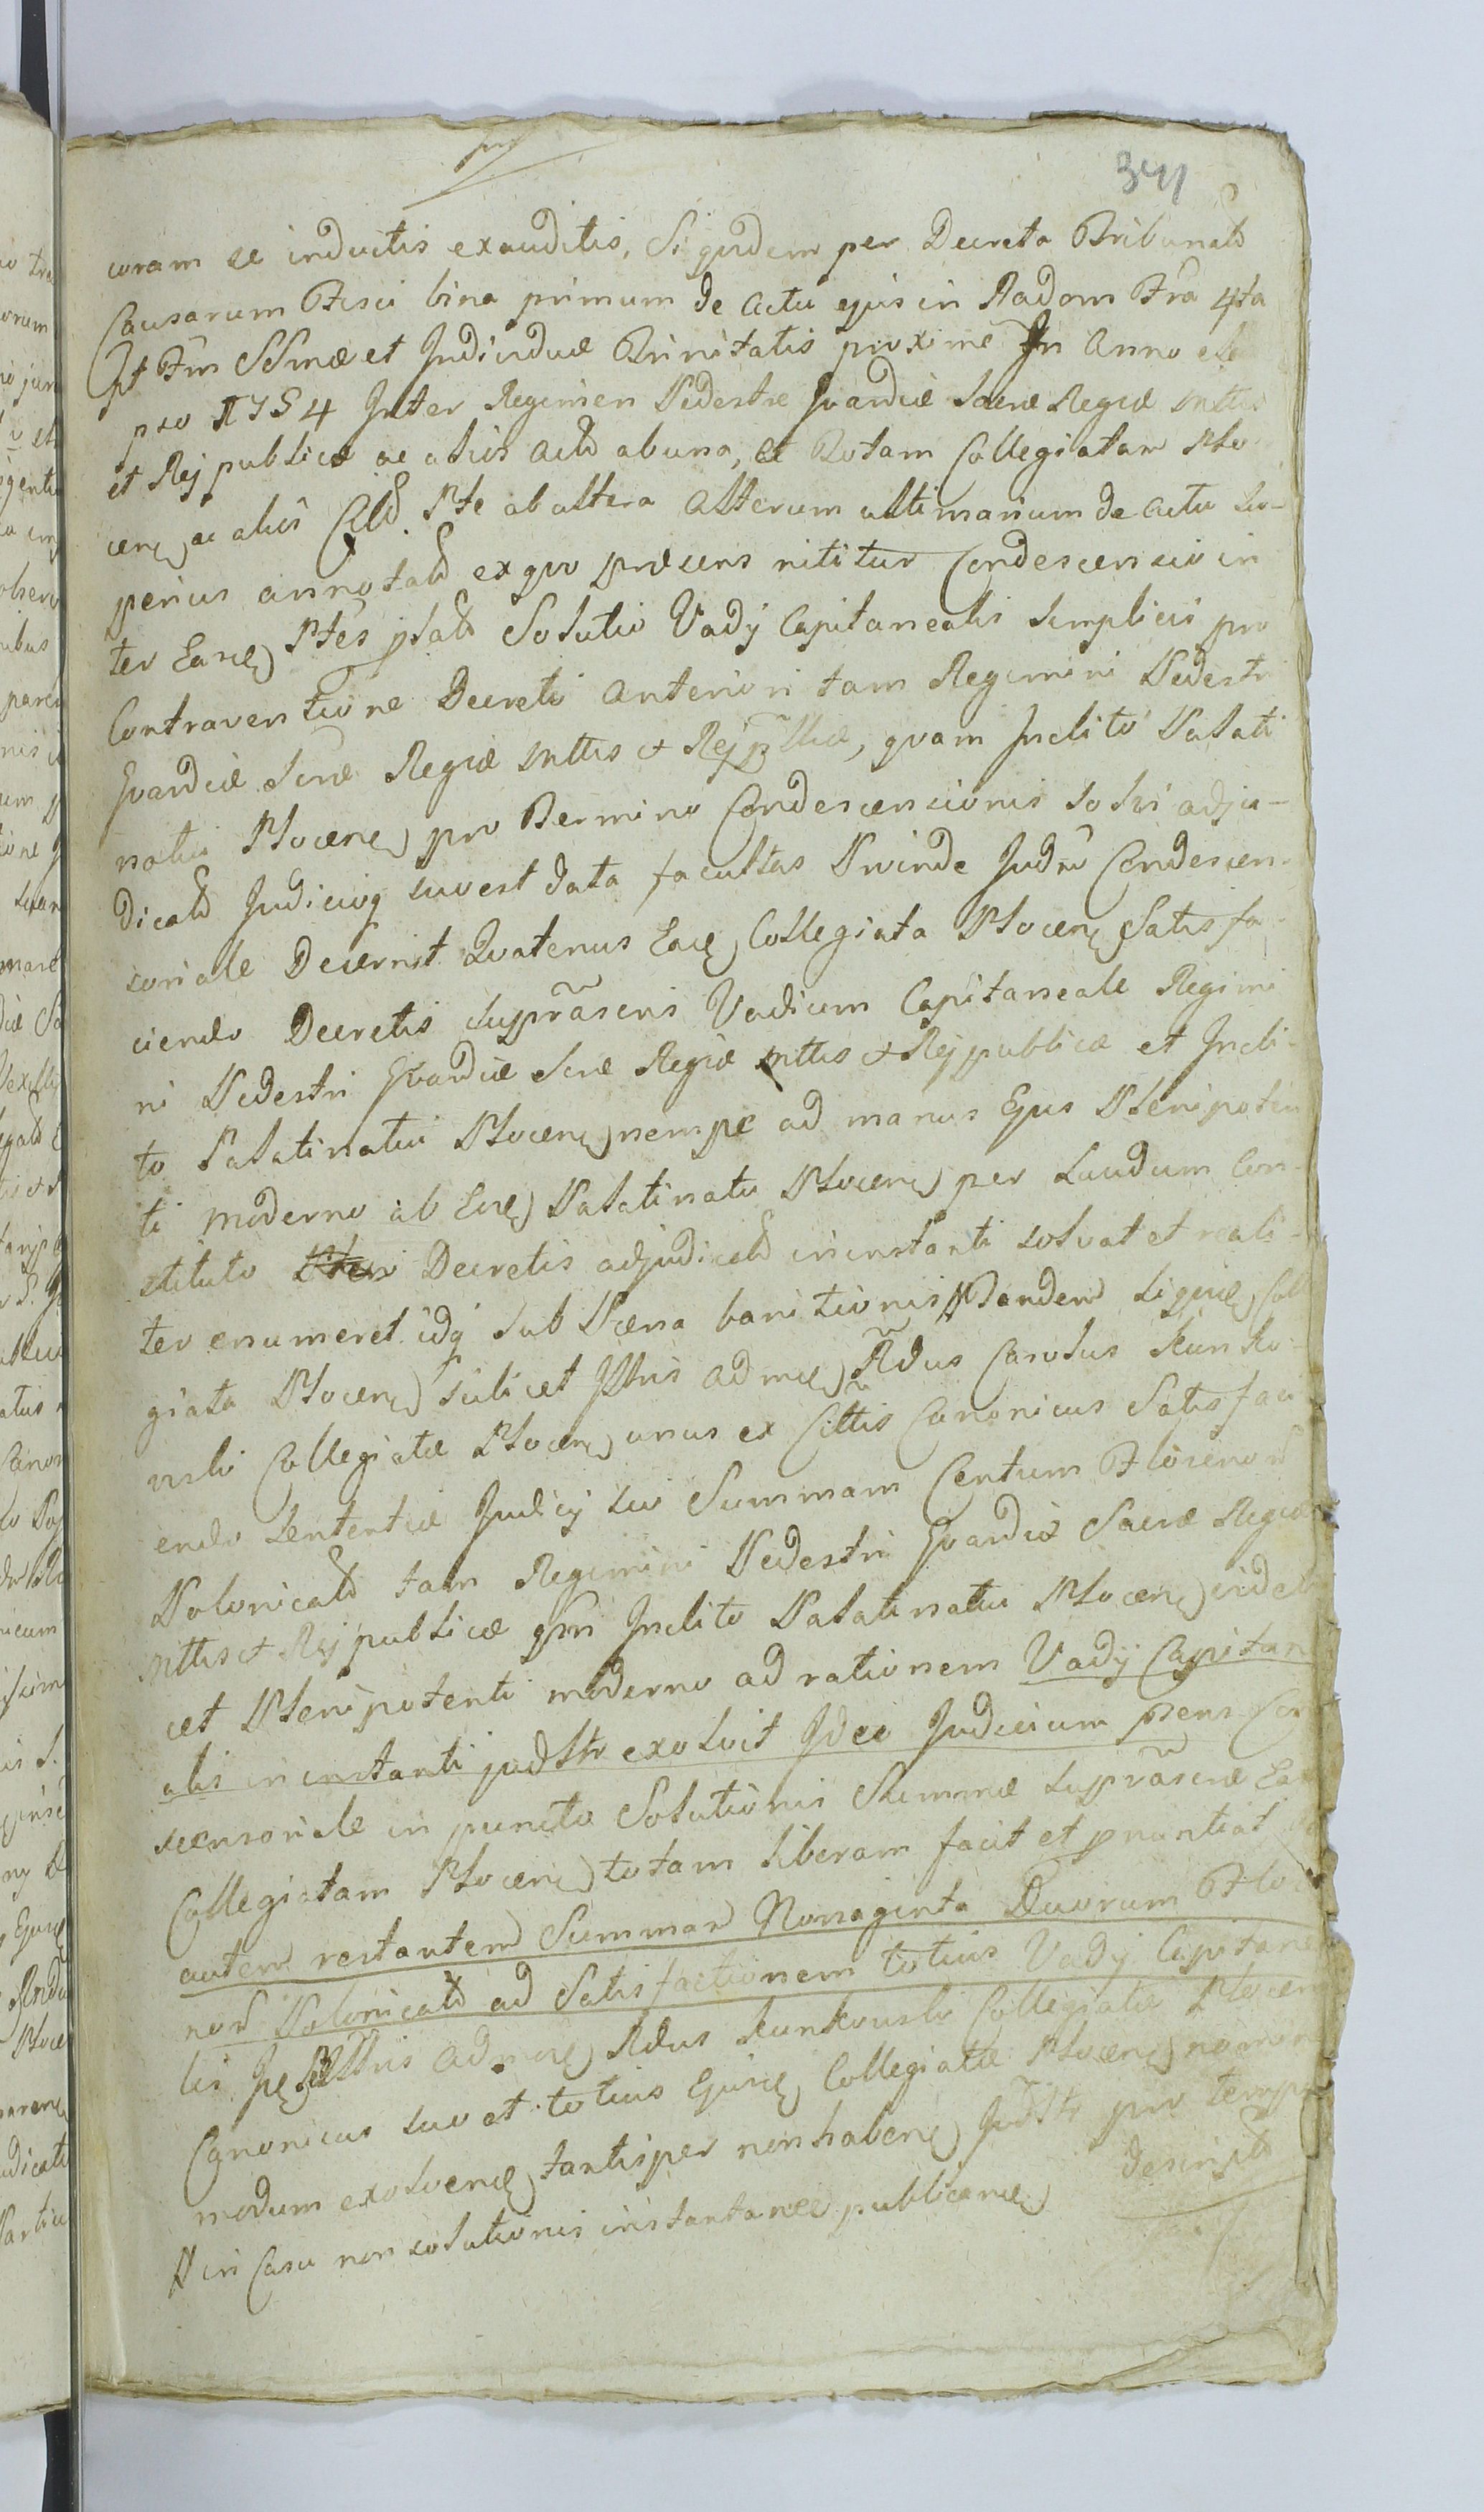 341
coram se inductis exauditis, Siqudem per Decreta Tribunald
Causarum Fisci bina primum de actu ejus in Radom Fra 4ta
pt Fm SSmæ et Individuæ Trinitatis proxime In Anno ela
pso 1754 Inter Regimen Pedestre Gvardiæ Sacræ Regiæ Mttis
et Rejpublicæ ac alios Actd abuna, et Totam Collegiatam Plo
cenę ac alios Cittd Pte ab altera Alterum ultimarium de actu su-
perius annotatd exqvo præsens nititur Condescensio in
ter Easdę Ptes platd Solutio Vadÿ Capitanealis Simplicis pro
Contraventione Decreti Anteriori tam Regimini Pedestri
Gvardiæ Scræ Regiæ Mttis & Rejpllicæ, qvam Inclito Palati
natui Plocenę pro Termino Condescensionis Solvi adju-
dicatd Judicioq suo est data facultas Proinde Judm Condescen-
soriale Decernit Qvatenus Eadę Collegiata Plocenę Satisfa-
ciendo Decretis supprascris Vadium Capitaneale Regimi
ni Pedestri Gvardiæ Scræ Regiæ Mttis & Rejpublicæ et Incli-
to Palatinatui Plocenę nempe ad manus Ejus Plenipoten
ti moderno ab Eodę Palatinatu Plocenę per Laudum Con-
stituto Decretis adjudicatd in instanti solvat et reali-
ter enumeret idq sub Pæna banitionis // Tandem Siquidę Colle
giata Plocenę scilicet Illris Admdę Rdus Carolus Kunko-
wski Collegiatæ Plocenę unus ex Cittis Canonicus Satisfaci
endo Sententiæ Judicÿ sui Summam Centum Florenord
Polonicald tam Regimini Pedestri Gvardiæ Sacræ Regiæ
Mttis & Rejpublicæ qm Inclito Palatinatui Plocenę videli
cet Plenipotenti moderno ad rationem Vadÿ Capitane
alis in instanti judltr exolvit Ideo Judicium præns Con
scensoriale in puncto Solutionis Summæ supprascræ Ean
Collegiatam Plocenę totam liberam facit et pnuntiat
autem restantem Summam Nonaginta Duorum Flore
nord Polonicald ad Satisfactionem totius Vadÿ Capitanea
lis Illris Admdę Rdus Kunkowski Collegiatæ Plocenę
Canonicus suo et totius Ejusdę Collegiatæ Plocenę nomine
modum exolvendę tantisper non habenę Judltr pro tempe
// in Casu non solutionis instantanee publicandę descriptd